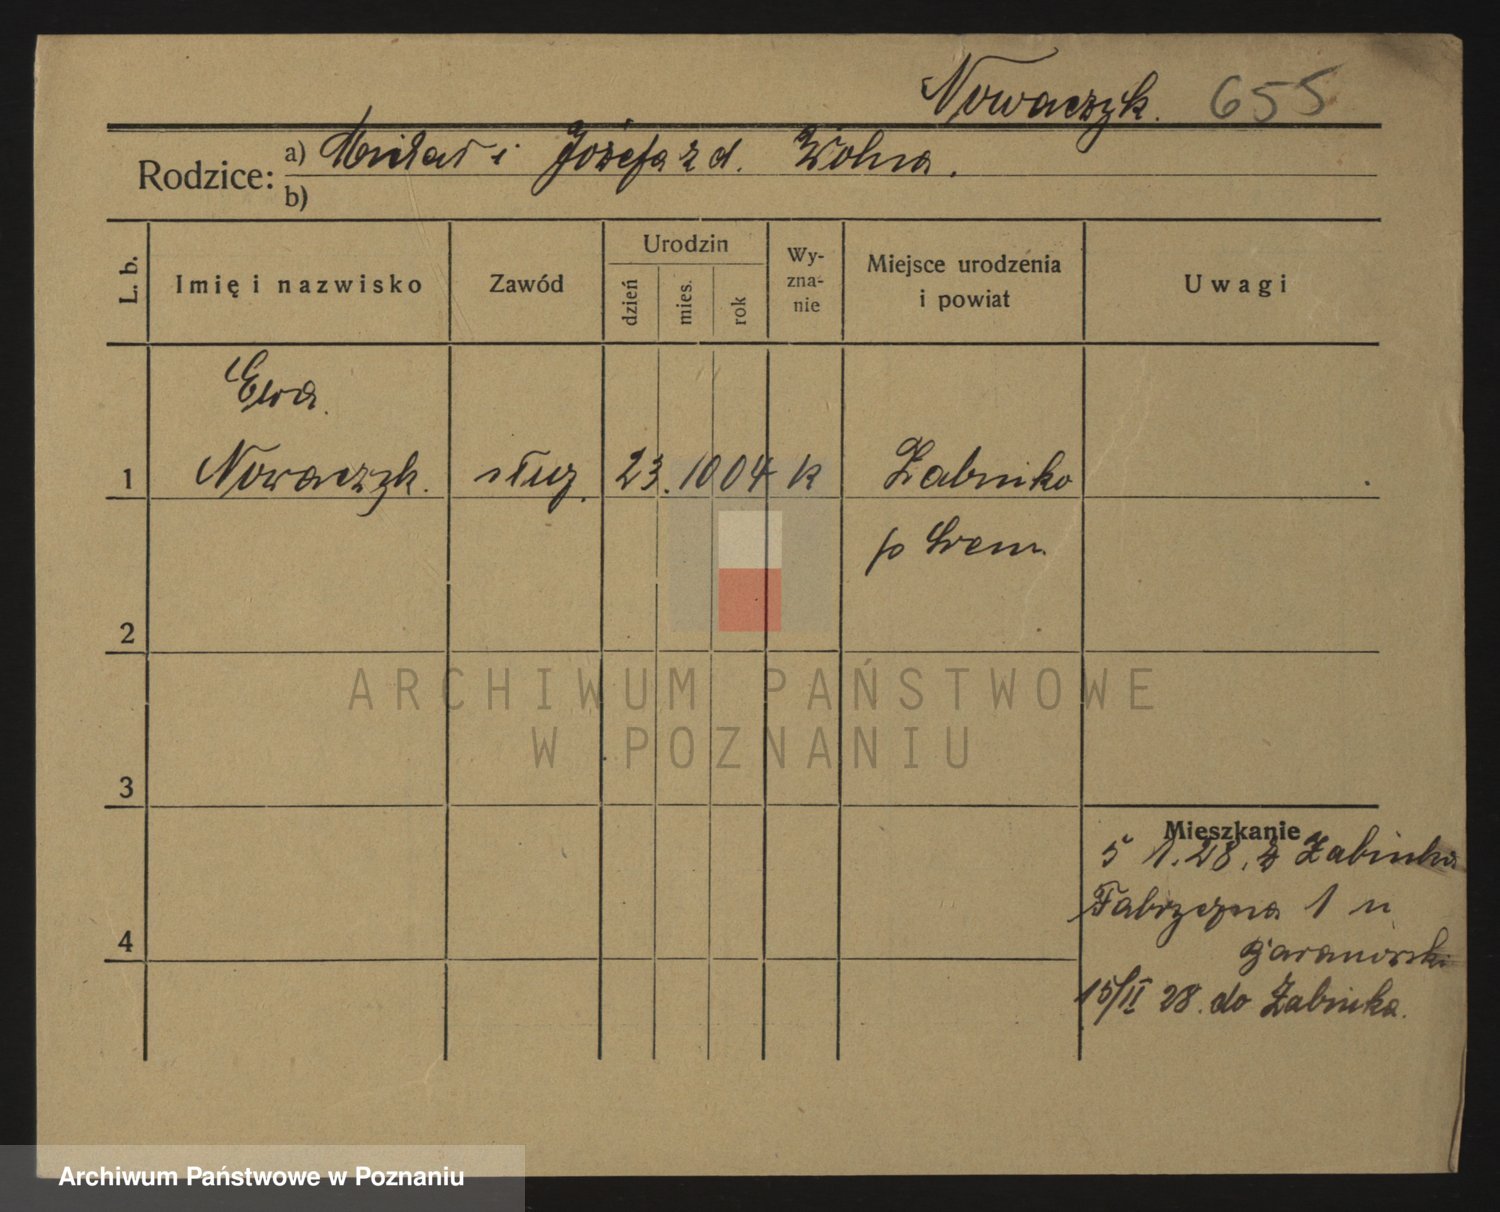 Nowaczyk. 655
Rodzice: a) Michał i Józefa z d. Wolna.
b)
L. b. Imię i nazwisko Zawód Urodzin dzień mies. rok Wy-zna-nie Miejsce urodzenia i powiat Uwagi
Ewa
1 Nowaczyk. służ. 23. 10 04 k Żabinko
p Śrem.
2
ARCHIWUM PAŃSTWOWE
W POZNANIU
3
Mieszkanie
5 1. 28. z Żabinka
Fabryczna 1 u
4
Baranowski
15/II 28. do Żabinka.
Archiwum Państwowe w Poznaniu